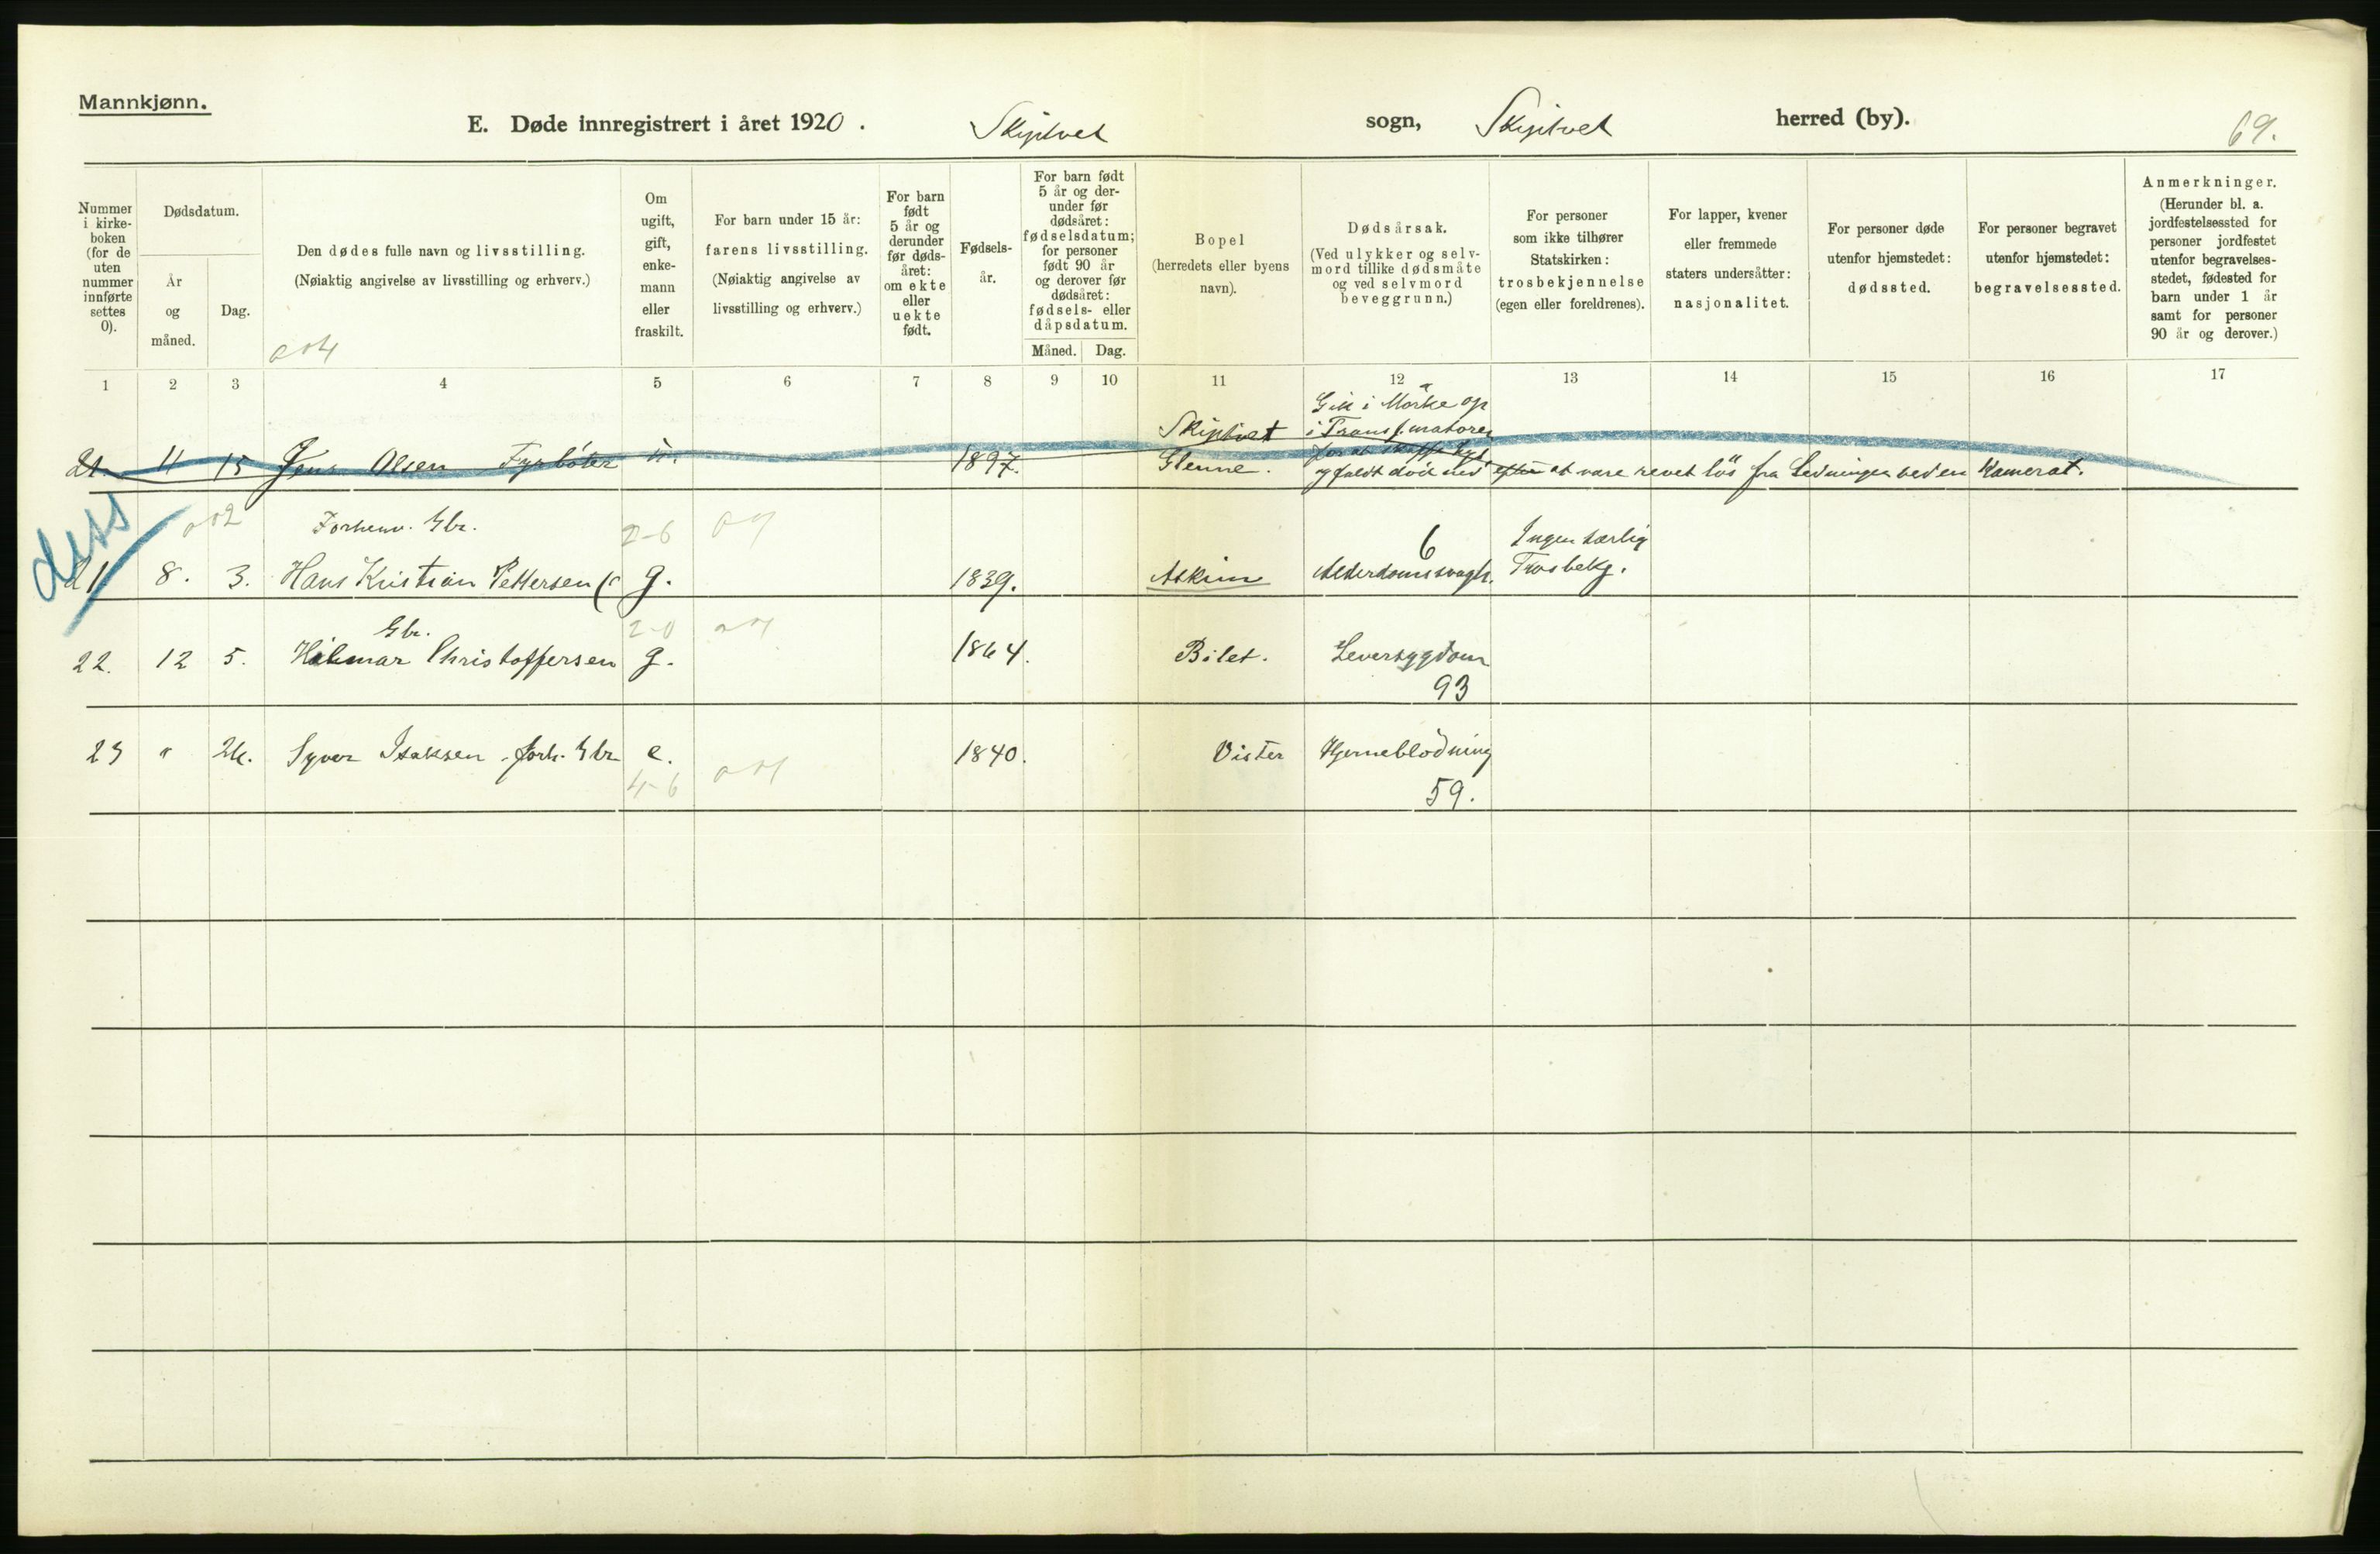 Mannkjønn.
E. Døde innregistrert i året 1920. Skiptvet sogn, Skiptvet herred (by).
69.
Nummer i kirke-boken (for de uten nummer innførte settes 0).
Dødsdatum.
År og måned.
Dag.
Den dødes fulle navn og livsstilling.
(Nøiaktig angivelse av livsstilling og erhverv.)
Om ugift, gift, enke-mann eller fraskilt.
For barn under 15 år:
farens livsstilling.
(Nøiaktig angivelse av livsstilling og erhverv.)
For barn født 5 år og derunder før døds-året: om ekte eller uekte født.
Fødsels-år.
For barn født 5 år og der-under før dødsåret: fødselsdatum; for personer født 90 år og derover før dødsåret: fødsels- eller dåpsdatum.
Måned. Dag.
Bopel
(herredets eller byens navn).
Dødsårsak.
(Ved ulykker og selv-mord tillike dødsmåte og ved selvmord beveggrunn.)
For personer som ikke tilhører Statskirken: trosbekjennelse (egen eller foreldrenes).
For lapper, kvener eller fremmede staters undersåtter: nasjonalitet.
For personer døde utenfor hjemstedet: dødssted.
For personer begravet utenfor hjemstedet: begravelsessted.
Anmerkninger.
(Herunder bl. a. jordfestelsessted for personer jordfestet utenfor begravelses-stedet, fødested for barn under 1 år samt for personer 90 år og derover.)
1 2 3 4 5 6 7 8 9 10 11 12 13 14 15 16 17
21 11 15 Jens Olsen Fyrbøter u. 1897. Skiptvet Glenne. Gik i Mørke op
i Transformatoren
for at skaffe Lys
og faldt död ned efter at være revet lös fra Ledningen ved en Kamerat.
Forhenv. Gbr. 2-6 6 Ingen særlig
21 8. 3. Hans Kristian Pettersen g. 1839. Askim Alderdomssvagh. Trosbekj.
Gbr. 2-0
22. 12 5. Hilmar Christoffersen g. 1864. Bilet. Leversygdom
93
23 " 24. Syver Isaksen forh. Gbr e. 1840. Vister Hjerneblödning
4-6 59.